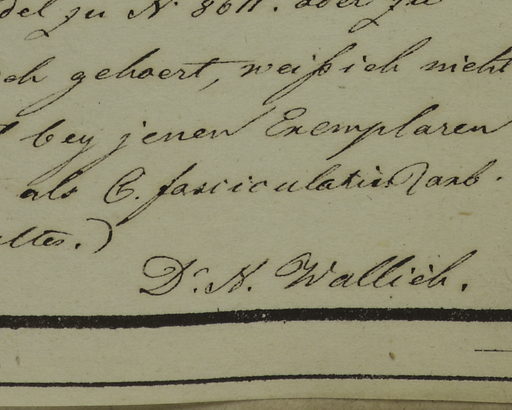 zu N. 8611. oder zu
gehoert, weiß ich nicht
bey jenen Exemplaren
als C. fasciculatus Roxb.
Dr. N. Wallich.